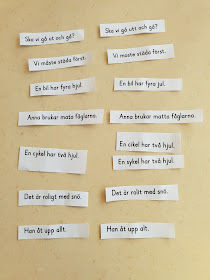 Ska vi gå ut och gå?
Ska vi gå utt och gå?
Vi måste städa först.
Vi måste städa forst.
En bil har fyra hjul.
En bil har fyra jul.
Anna brukar mata fåglarna.
Anna brukar matta fåglarna.
En cykel har två hjul.
En cikel har två hjul.
En sykel har två hjul.
Det är roligt med snö.
Det är rolit med snö.
Han åt upp allt.
Han åt upp alt.